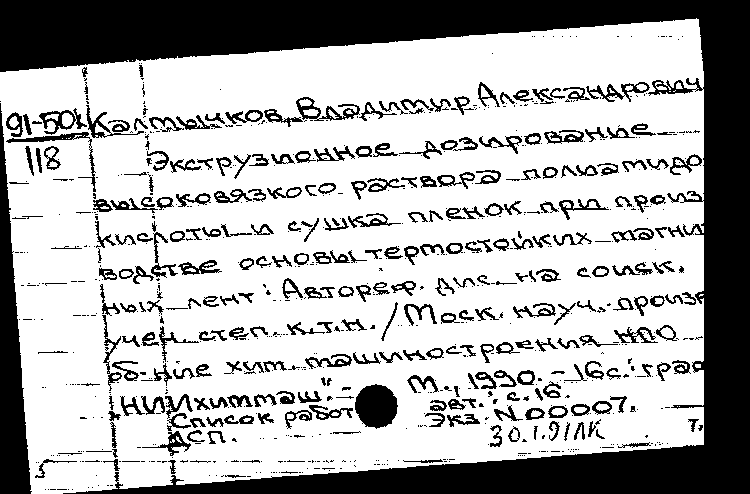 91-50к Калтычков, Владимир Александрович
118 Экструзионное дозирование
высоковязкого раствора полиамидо
кислоты и сушка пленок при произ
водстве основы термостойких магни
ных лент : Автореф. дис. на соиск.
учен. степ. к.т.н. / Моск. науч.-произв
об-ние хим. машиностроения НПО
„НИИхиммаш". - М., 1990. - 16с. : граф
Список работ авт. : с. 16.
ДСП. Экз. N00007.
30.1.91ЛК т.
5